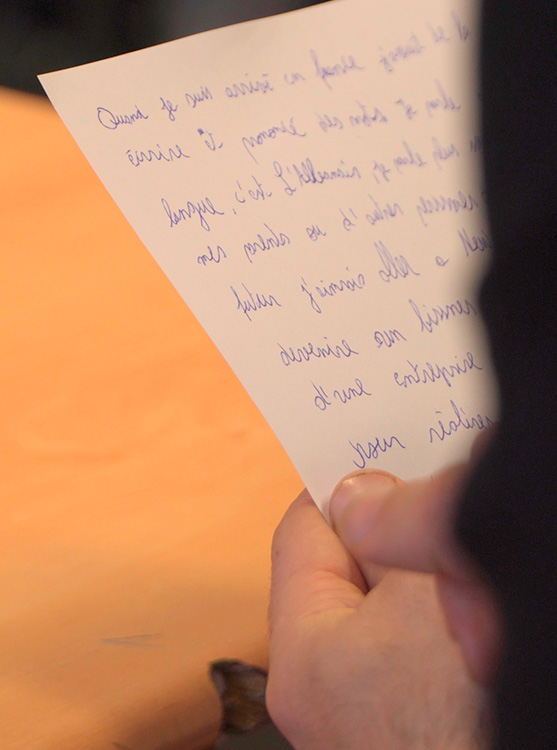 Quand je suis arrivé en france j'avait de la
écrire et prononcé des mots et parlé
langue, c'est L'Allemania, je parle
mes parents ou d'autres personnes
futur j'aimrais allé a
devenire un bisness
d'une entreprise
pour réaliser